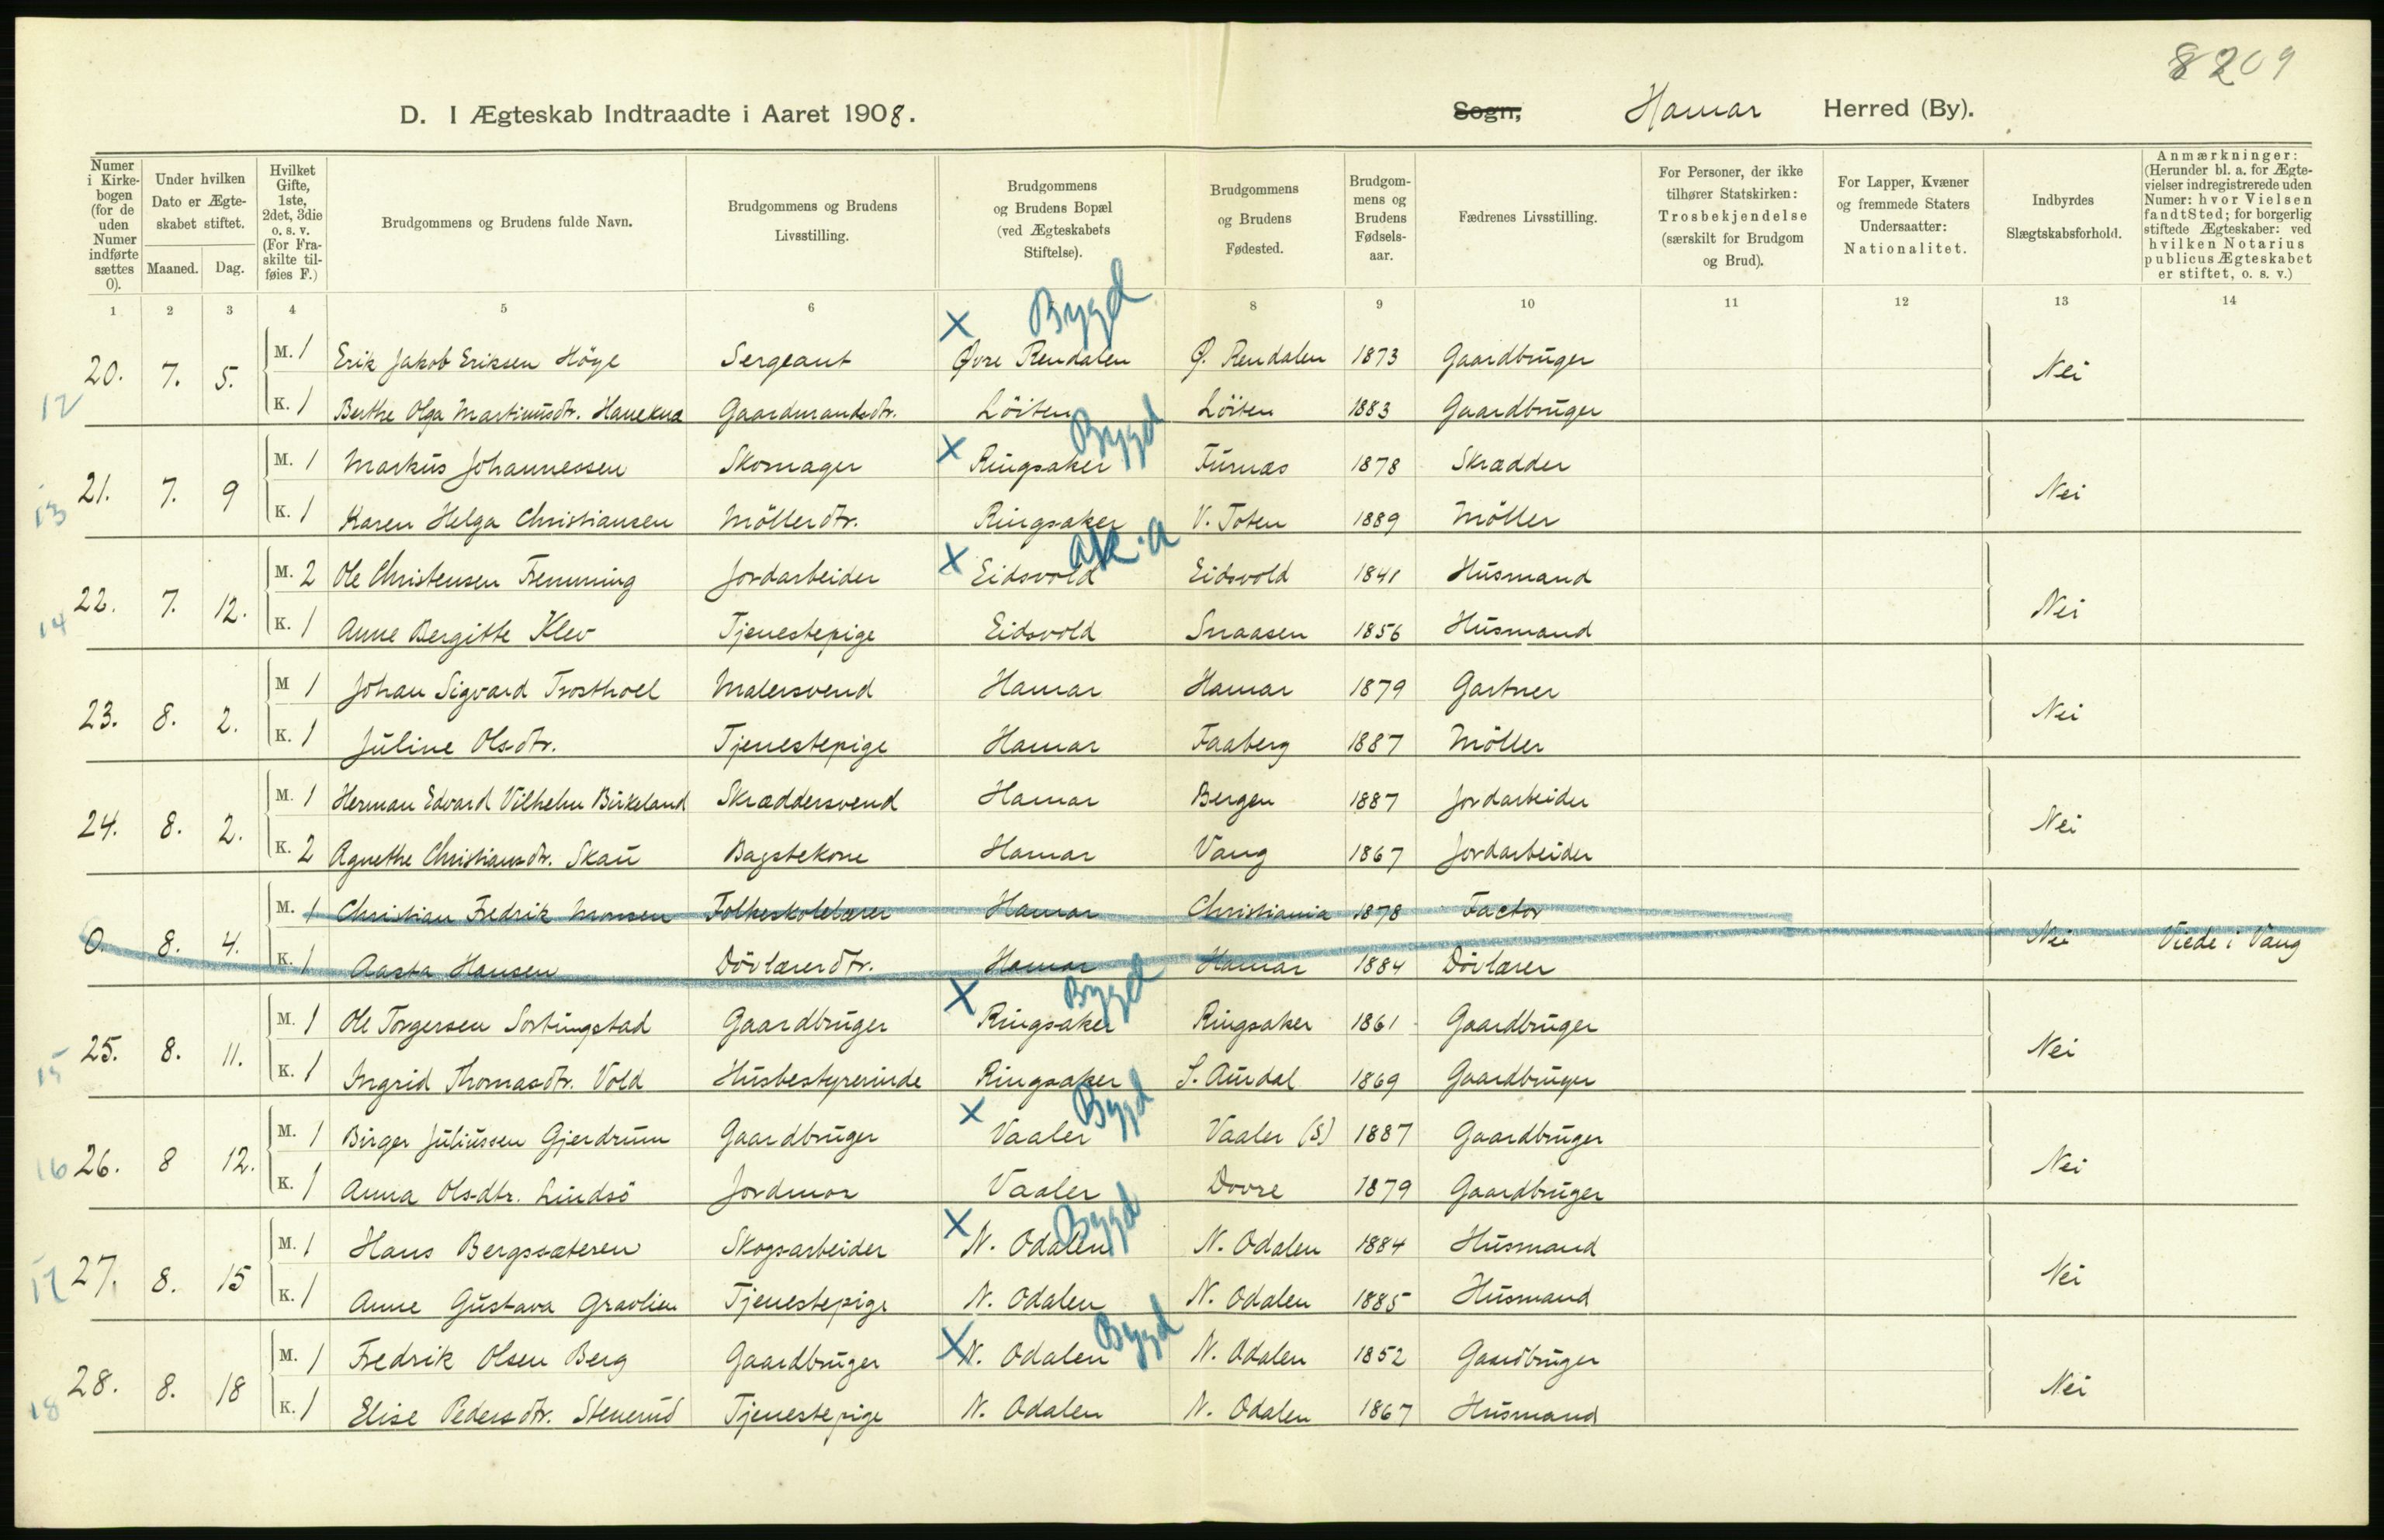 8209
D. I Ægteskab Indtraadte i Aaret 1908.
Sogn, Hamar Herred (By).
Numer i Kirkebogen (for de uden Numer indførte sættes 0).
Under hvilken Dato er Ægteskabet stiftet.
Maaned. Dag.
Hvilket Gifte, 1ste, 2det, 3die o. s. v. (For Fraskilte tilføies F.)
Brudgommens og Brudens fulde Navn.
Brudgommens og Brudens Livsstilling.
Brudgommens og Brudens Bopæl (ved Ægteskabets Stiftelse).
Brudgommens og Brudens Fødested.
Brudgommens og Brudens Fødselsaar.
Fædrenes Livsstilling.
For Personer, der ikke tilhører Statskirken: Trosbekjendelse (særskilt for Brudgom og Brud).
For Lapper, Kvæner og fremmede Staters Undersaatter: Nationalitet.
Indbyrdes Slægtskabsforhold.
Anmærkninger: (Herunder bl. a. for Ægtevielser indregistrerede uden Numer: hvor Vielsen fandt Sted; for borgerlig stiftede Ægteskaber: ved hvilken Notarius publicus Ægteskabet er stiftet, o. s. v.)
1 2 3 4 5 6 8 9 10 11 12 13 14
X Bygd
12 20. 7. 5. M. 1 Erik Jakob Eriksen Höye Sergeant Øvre Rendalen Ø. Rendalen 1873 Gaardbruger Nei
K. 1 Berthe Olga Martinusdtr. Hanekna Gaardmandsdtr. Löiten Löiten 1883 Gaardbruger
X Bygd
13 21. 7. 9 M. 1 Markus Johannessen Skomager Ringsaker Furnæs 1878 Skrædder Nei
K. 1 Karen Helga Christiansen Möllerdtr. Ringsaker V. Toten 1889 Möller
X Ak. a
14 22. 7. 12. M. 2 Ole Christensen Fremming Jordarbeider Eidsvold Eidsvold 1841 Husmand Nei
K. 1 Anne Bergitte Klev Tjenestepige Eidsvold Snaasen 1856 Husmand
23. 8. 2. M 1 Johan Sigvard Trosthoel Malersvend Hamar Hamar 1879 Gartner Nei
K. 1 Juline Olsdtr. Tjenestepige Hamar Faaberg 1887 Möller
24. 8. 2. M. 1 Herman Edvard Vilhelm Birkeland Skræddersvend Hamar Bergen 1887 Jordarbeider Nei
K. 2 Agnethe Christiansdtr. Skau Bagstekone Hamar Vang 1867 Jordarbeider
0. 8. 4. M. 1 Christian Fredrik Monsen Folkeskolelærer Hamar Christiania 1878 Factor Nei Viede i Vang
K. 1 Aasta Hansen Dövlærerdtr. Hamar Hamar 1884 Dövlærer
X Bygd
15 25. 8. 11. M. 1 Ole Torgersen Sortungstad Gaardbruger Ringsaker Ringsaker 1861 Gaardbruger Nei
K. 1 Ingrid Thomasdtr. Vold Husbestyrerinde Ringsaker S. Aurdal 1869 Gaardbruger
X Bygd
16 26. 8 12. M. 1 Birger Juliussen Gjerdrum Gaardbruger Vaaler Vaaler (S) 1887 Gaardbruger Nei
K. 1 Anna Olsdtr. Lindsö Jordmor Vaaler Dovre 1879 Gaardbruger
X Bygd
17 27. 8. 15 M. 1 Hans Bergssæteren Skogsarbeider N. Odalen N. Odalen 1884 Husmand Nei
K. 1 Anne Gustava Gravlien Tjenestepige N. Odalen N. Odalen 1885 Husmand
X Bygd
18 28. 8. 18 M. 1 Fredrik Olsen Berg Gaardbruger N. Odalen N. Odalen 1852 Gaardbruger Nei
K. 1 Elise Pedersdtr. Stenerud Tjenestepige N. Odalen N. Odalen 1867 Husmand